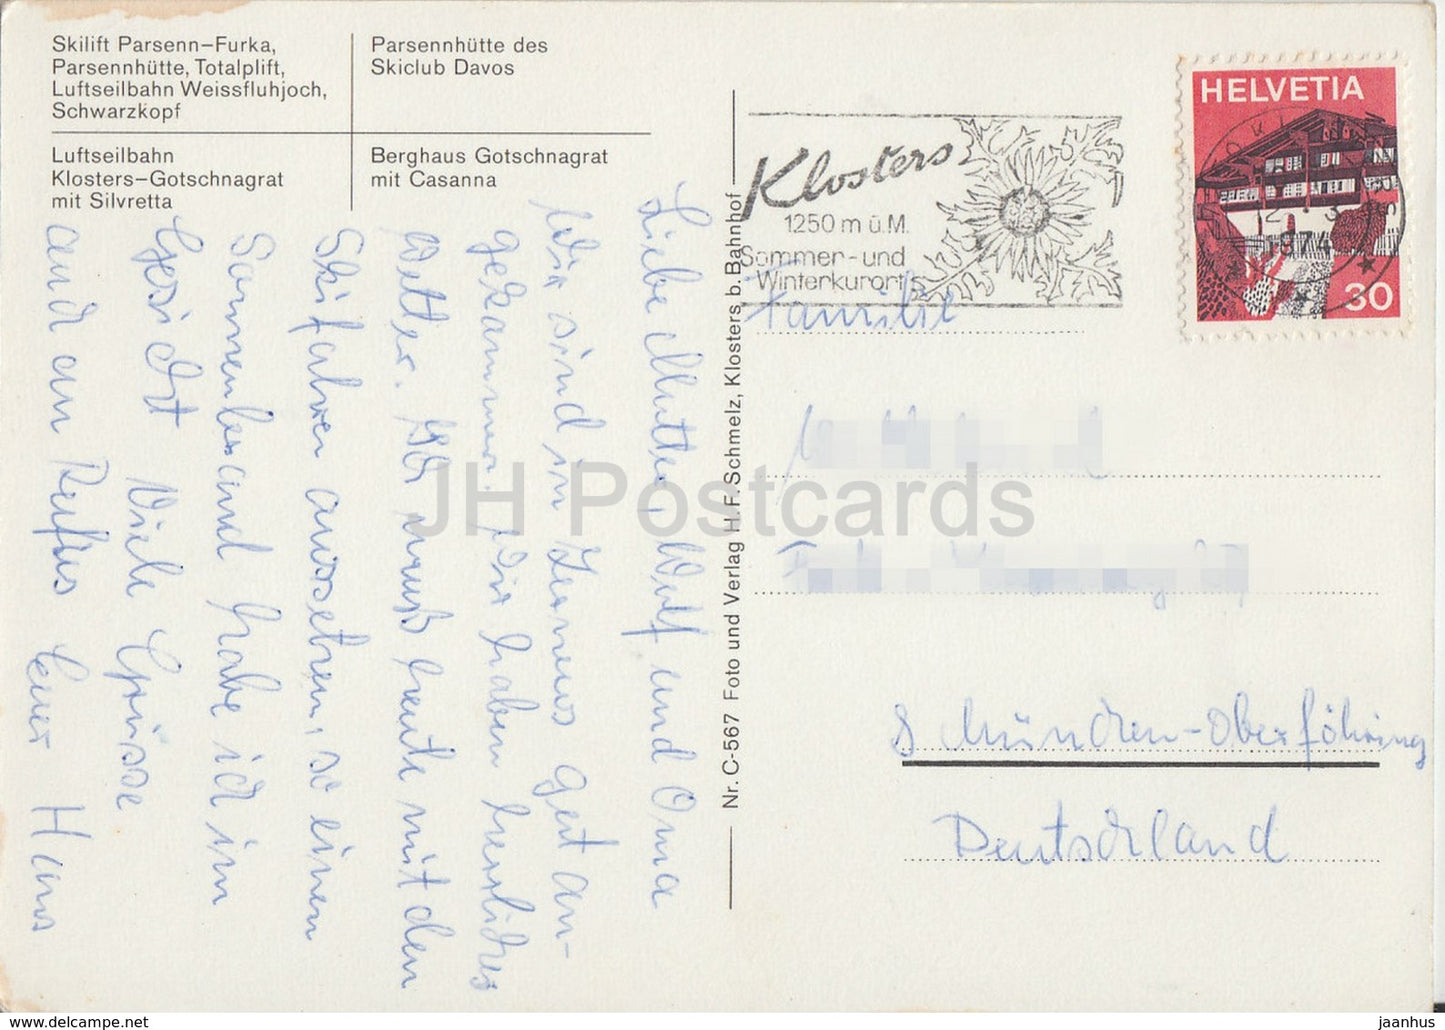 Skilift Parsenn–Furka,
Parsennhütte, Totalplift,
Luftseilbahn Weissfluhjoch,
Schwarzkopf
Parsennhütte des
Skiclub Davos
Luftseilbahn
Klosters–Gotschnagrat
mit Silvretta
Berghaus Gotschnagrat
mit Casanna
Liebe Mutter, Wulf und Oma
Wir sind in gut an-
gekommen. Wir haben herrliches
Wetter. Ich muß heute mit dem
Skifahren aussetzen, so einen
Sonnenbrand habe ich im
Gesicht Viele Grüsse
auch an Euer Hans
Nr. C-567 Foto und Verlag H. F. Schmelz, Klosters b. Bahnhof
Klosters
1250 m ü. M.
Sommer- und
Winterkurort
HELVETIA
30
KLOSTERS
12.-3.
1974
Familie
8 München-Oberföhring
Deutschland
JH Postcards
jaanhus - www.delcampe.net